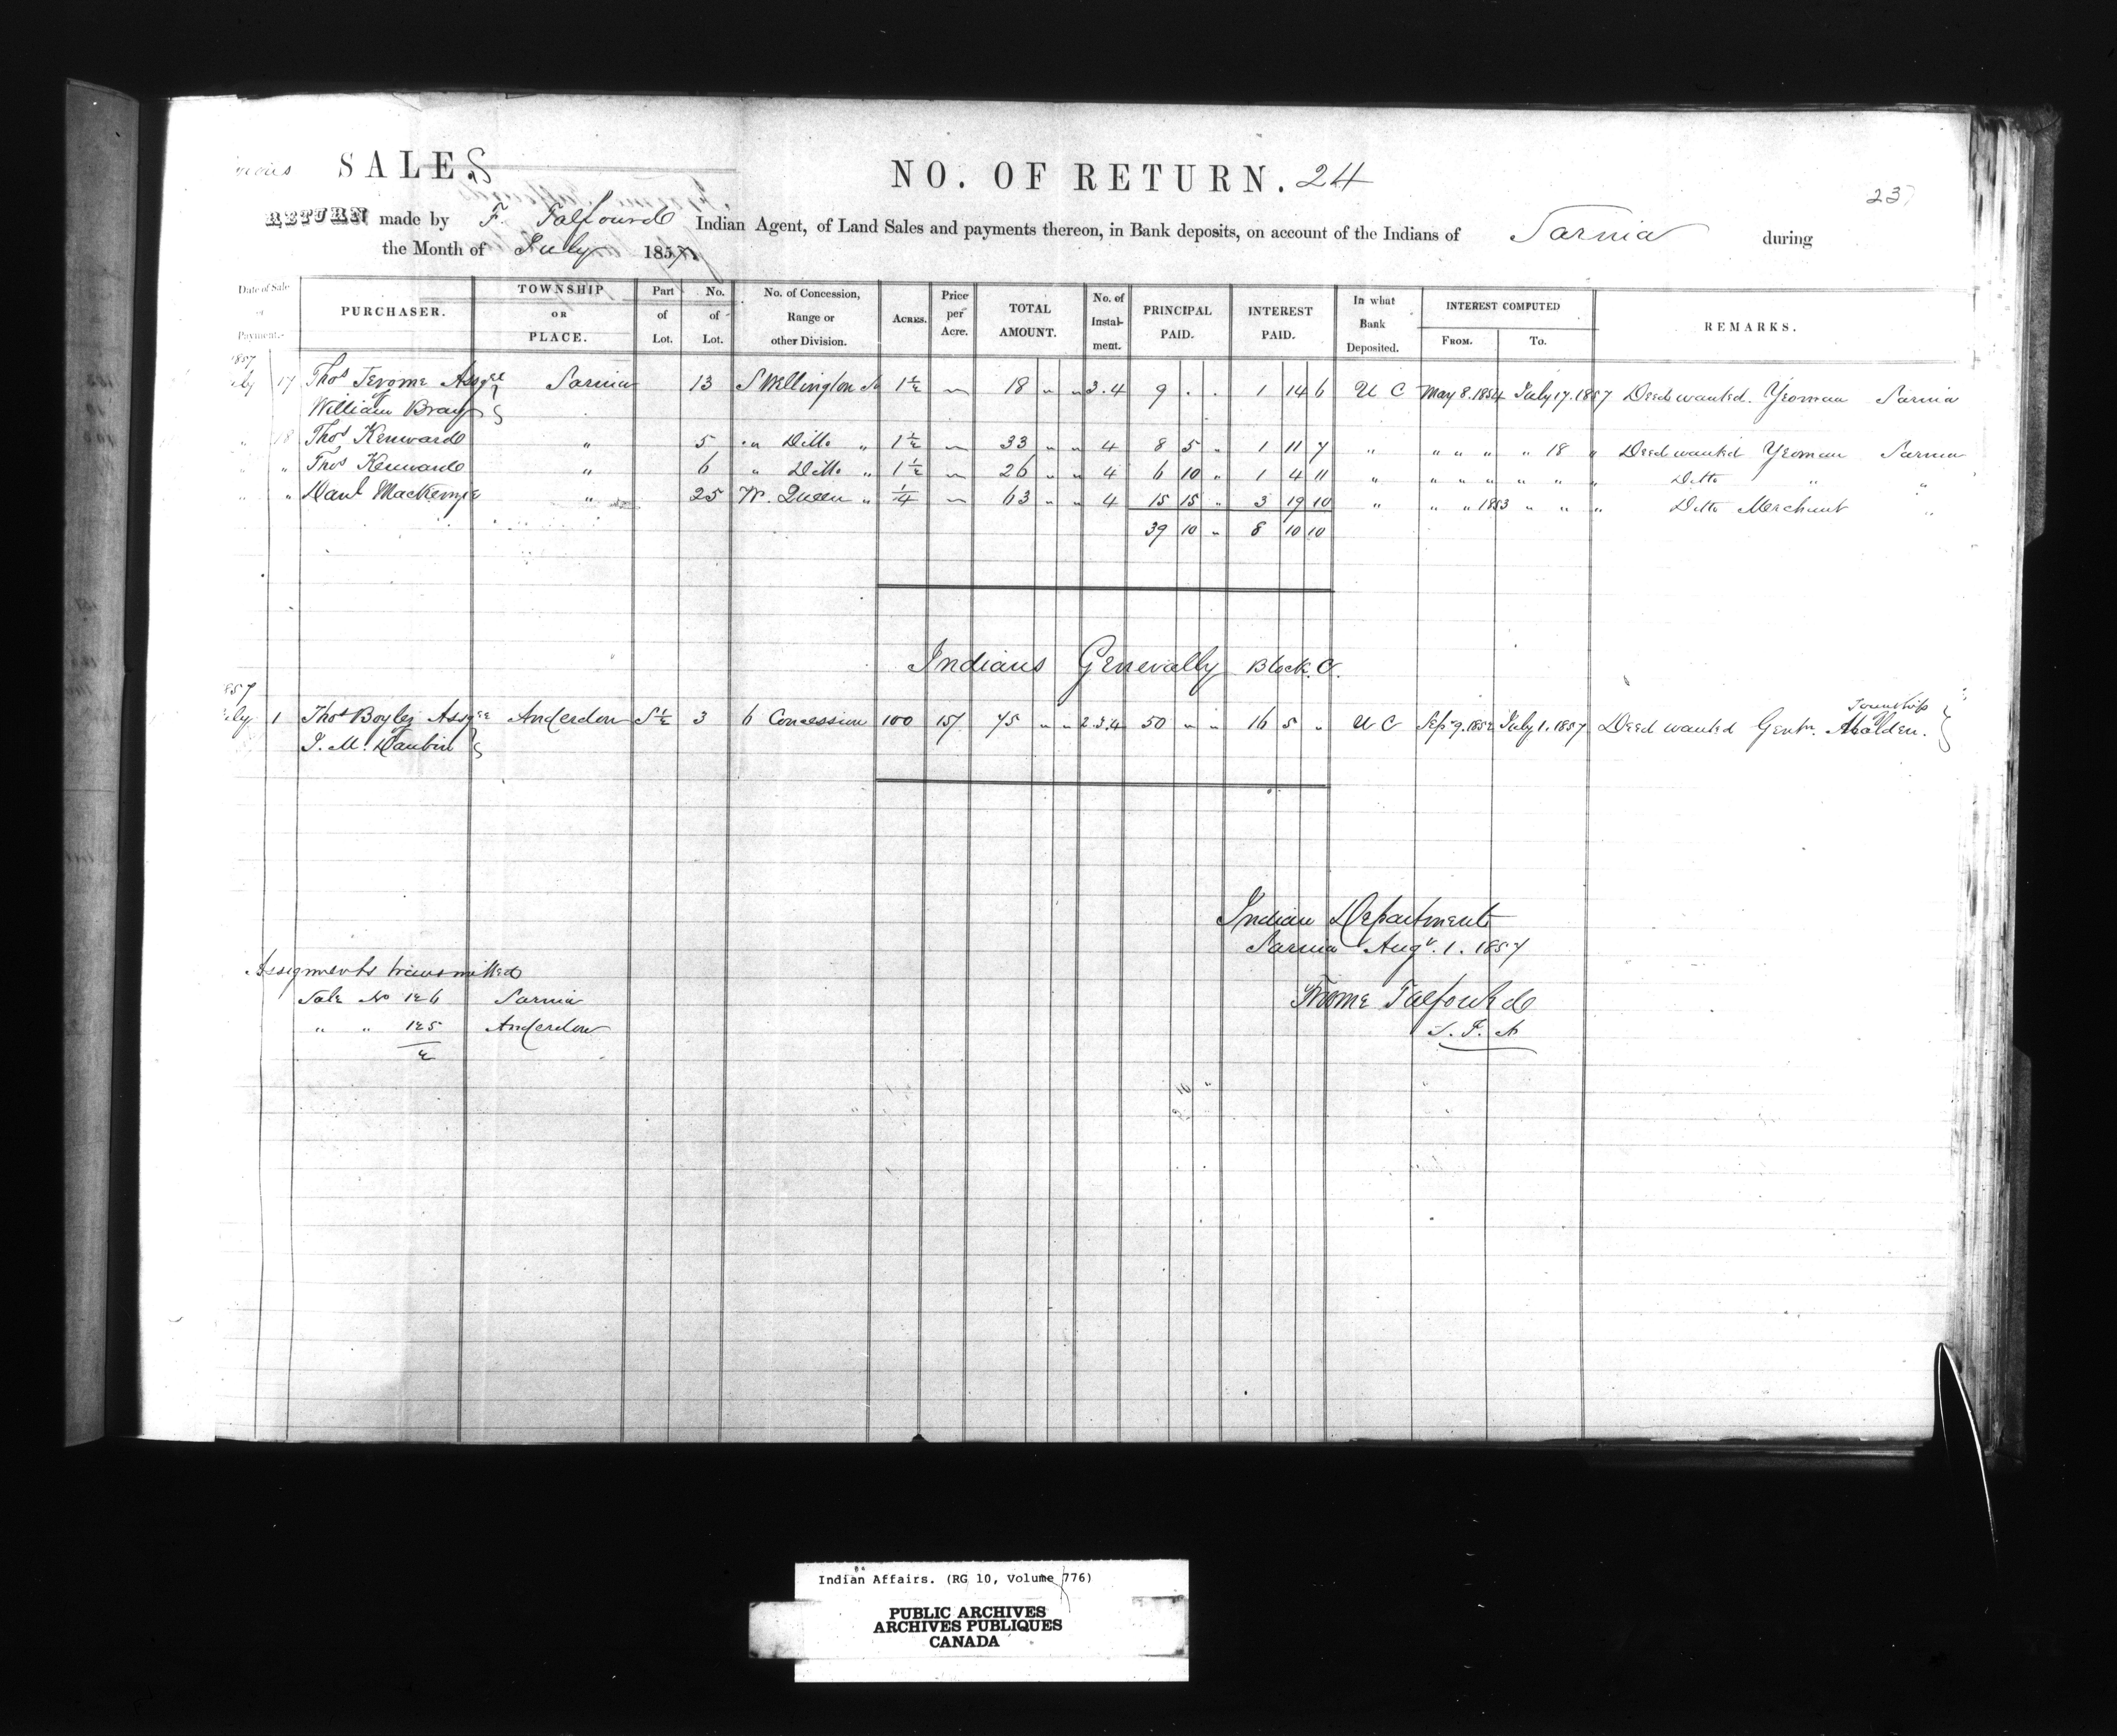 SALES NO. OF RETURN. 24
23
RETURN made by F. Talfourd Indian Agent, of Land Sales and payments thereon, in Bank deposits, on account of the Indians of Sarnia during
the Month of July 1857
Date of Sale or Payment. PURCHASER. TOWNSHIP OR PLACE. Part of Lot. No. of Lot. No. of Concession, Range or other Division. ACRES. Price per Acre. TOTAL AMOUNT. No. of Instalment. PRINCIPAL PAID. INTEREST PAID. In what Bank Deposited. INTEREST COMPUTED FROM. To. REMARKS.
1857
July 17 Thos Jerome Assgee Sarnia 13 S Wellington St 1/2 — 18 " " 3.4 9 . . 1 14 6 U C May 8. 1854 July 17. 1857 Deed wanted. Yeoman Sarnia
of William Bray
" 18 Thos Kenward " 5 " Ditto " 1/2 — 33 " " 4 8 5 " 1 11 7 " " " " " 18 " Deed wanted Yeoman Sarnia
" " Thos Kenward " 6 " Ditto " 1/2 — 26 " " 4 6 10 " 1 4 11 " " " " " " " Ditto " "
" " Danl Mackenzie " 25 W. Queen " 1/4 — 63 " " 4 15 15 " 3 19 10 " " " 1853 " " " Ditto Merchant "
39 10 " 8 10 10
Indians Generally Block C.
1857
July 1 Thos Boyle Assgee Anderdon S 1/2 3 6 Concession 100 15/ 75 " " 2.3.4 50 " " 16 5 " U C Sep 9. 1852 July 1. 1857 Deed wanted Gentn. Township Malden.
of
Indian Department
Sarnia Augt. 1. 1857
Assignments transmitted
Sale No 126 Sarnia
Froome Talfourd
" " 125 Anderdon
2
Indian Affairs. (RG 10, Volume 776)
PUBLIC ARCHIVES
ARCHIVES PUBLIQUES
CANADA